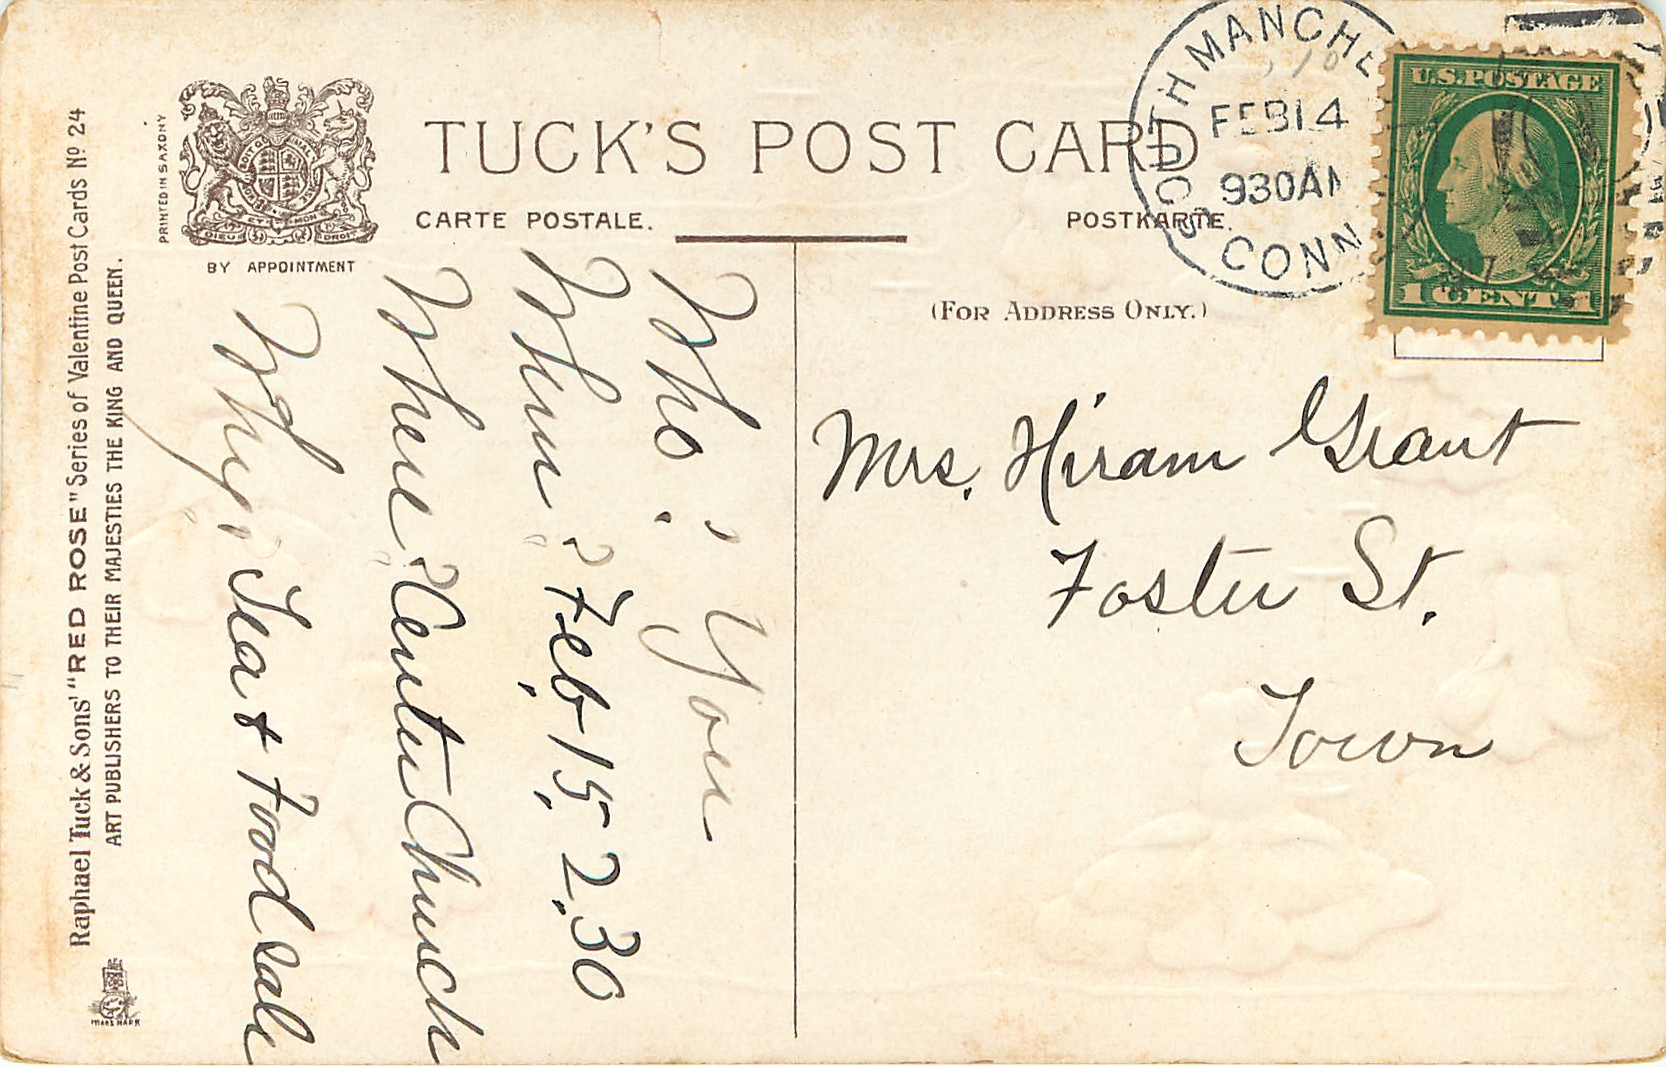 TUCK'S POST CARD
CARTE POSTALE.
POSTKARTE.
(FOR ADDRESS ONLY.)
PRINTED IN SAXONY
BY APPOINTMENT
DIEU ET MON DROIT
Raphael Tuck & Sons' "RED ROSE" Series of Valentine Post Cards No. 24
ART PUBLISHERS TO THEIR MAJESTIES THE KING AND QUEEN.
SOUTH MANCHE
FEB 14
930 AM
CONN.
U.S. POSTAGE
1 CENT 1
Who? You
When? Feb. 15, 2.30
Where? Center Church
Why? Tea & Food Sale
Mrs. Hiram Grant
Foster St.
Town